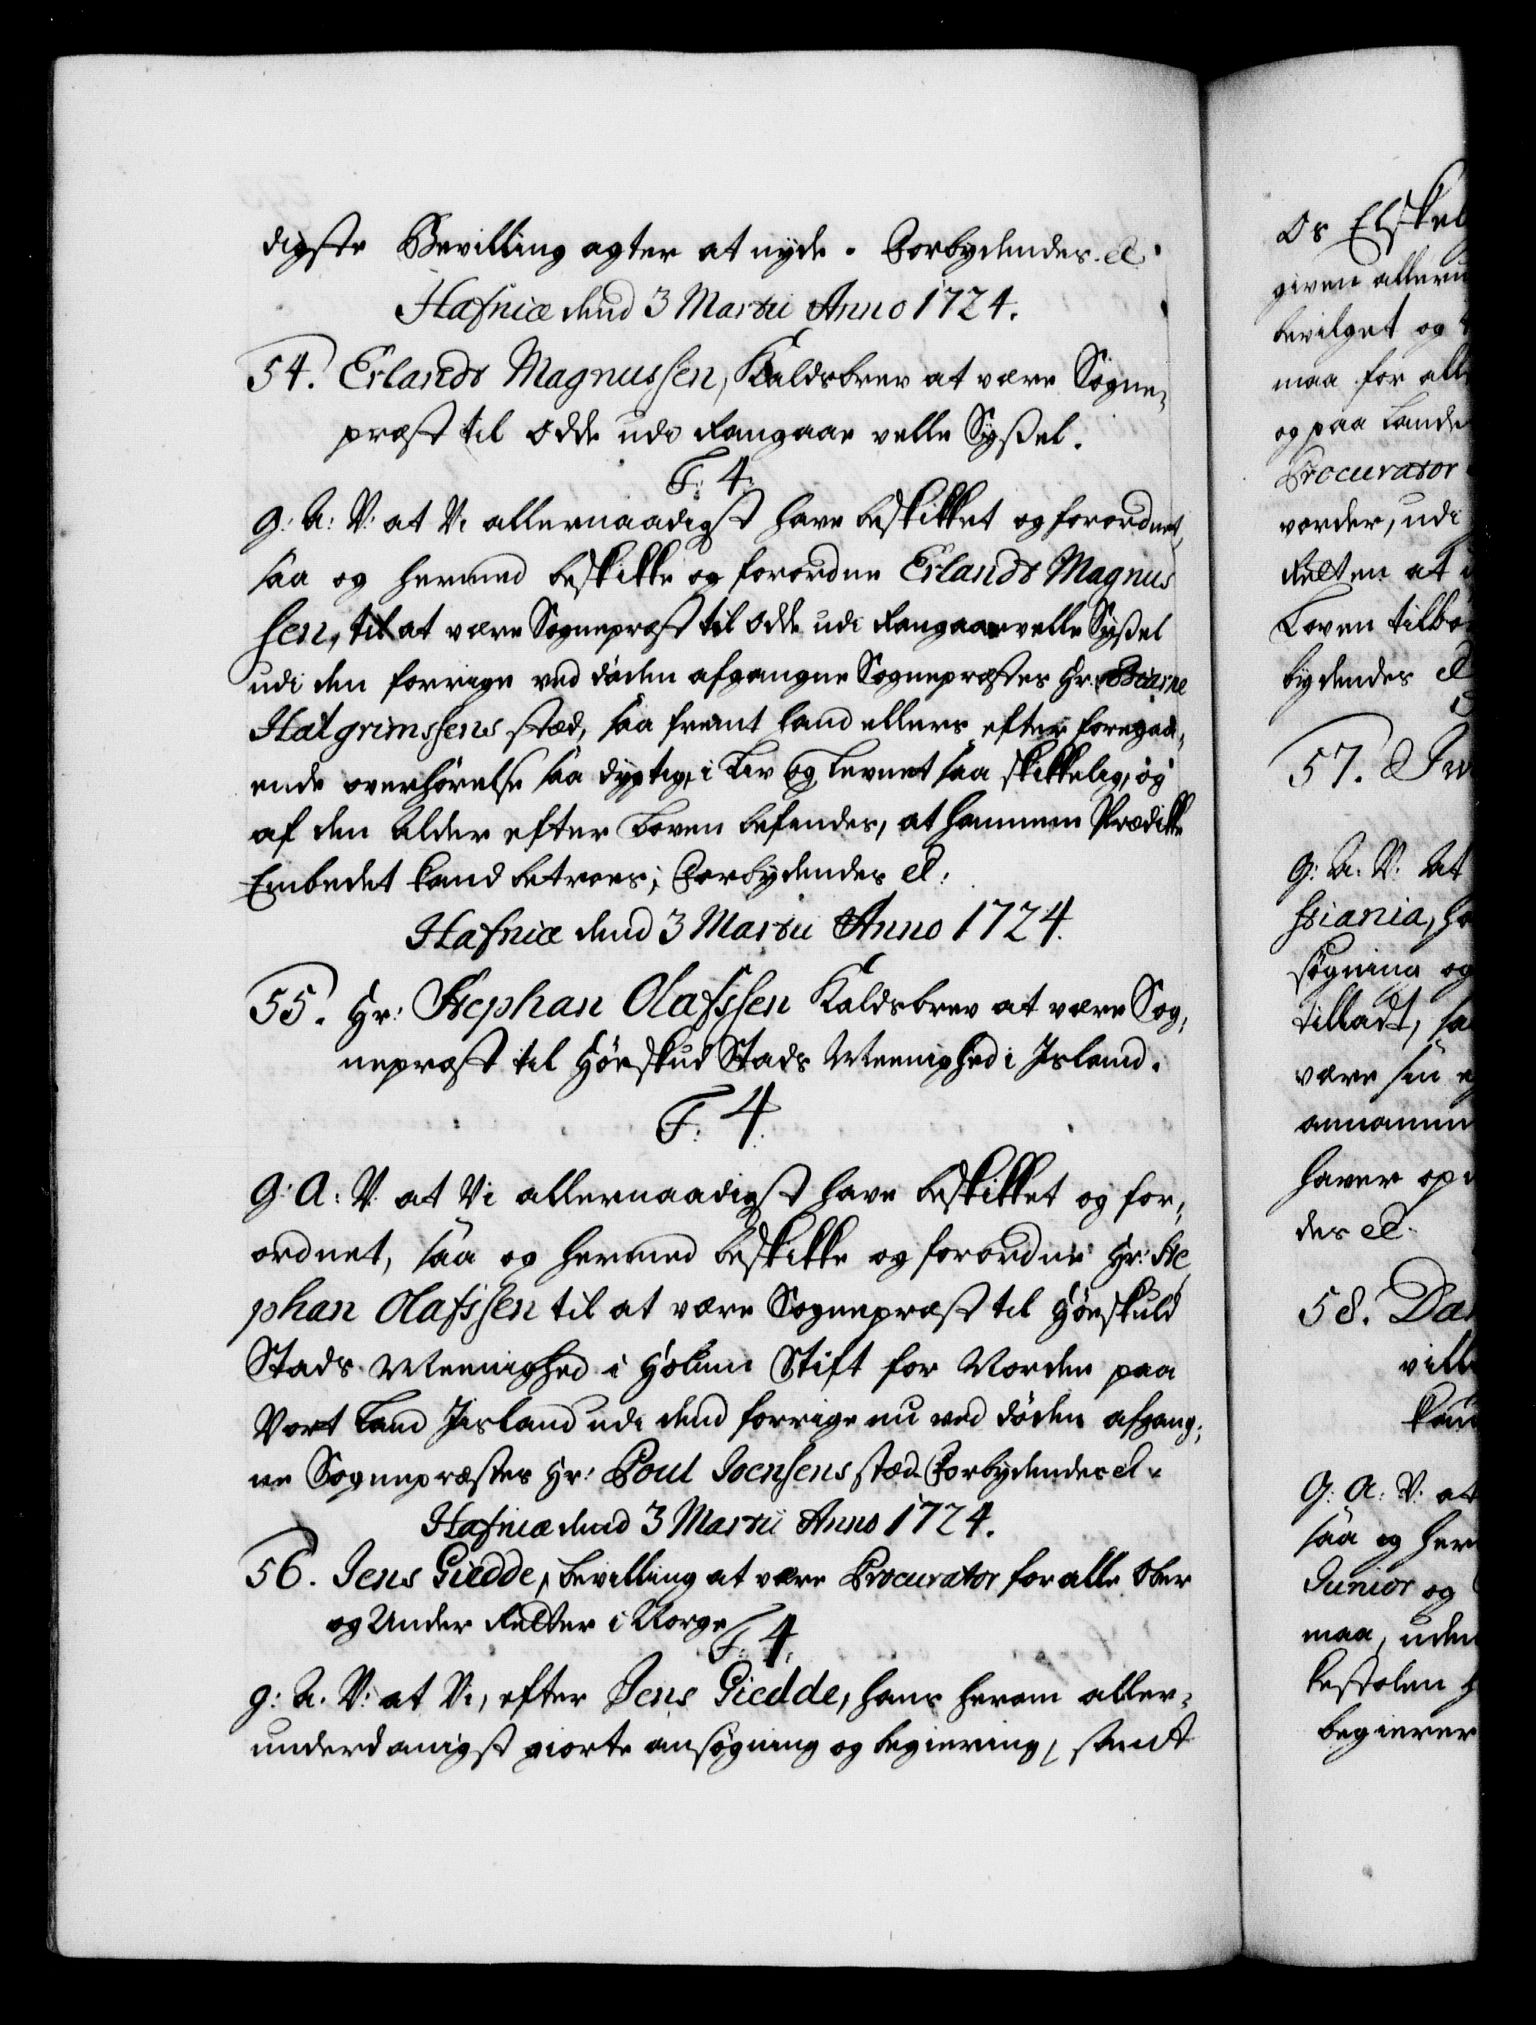 digste Bevilling agter at nyde. Forbydendes. etc.
Hafniæ dend 3 Martii Anno 1724.
54. Erlandt Magnussen, Kaldsbrev at være Sogne-
præst til Odde udi Rangaar velle Syssel.
F: 4:
G: A: V: at Vi allernaadigst have beskikket og forordnet,
saa og hermed beskikke og forordne Erlandt Magnus
sen, til at være Sognepræst til Odde udi Rangaarvelle Syssel
udi den forrige ved døden afgangne Sognepræstes Hr: Biarne
Halgrimssens stæd, saa fremt hand ellers efter foregaa-
ende overhørelse saa dygtig, i Liv og Levnet saa skikkelig, og
af den Alder efter Loven befindes, at hannem Prædike
Embedet kand betroes; Forbydendes etc:
Hafniæ dend 3 Martii Anno 1724.
55. Hr: Stephan Olafssen Kaldsbrev at være Sog-
nepræst til Høeskud Stads Meenighed i Island.
F: 4.
G: A: V: at Vi allernaadigst have beskikket og for-
ordnet, saa og hermed beskikke og forordne Hr: Ste
phan Olafssen til at være Sognepræst til Høeskuld
Stads Meenighed i Holum Stift for Norden paa
Vort Land Iisland udi dend forrige nu ved døden afgang-
ne Sognepræstes Hr: Poul Joensens stæd. Forbydendes etc.
Hafniæ dend 3 Martii Anno 1724.
56. Jens Giedde, bevilling at være Procurator for alle Ober
og Under Retter i Norge
F: 4.
G: A: V: at Vi, efter Jens Giedde, hans herom aller-
underdanigst giorte ansøgning og begiering, samt
Os Elskel
given alleru
bevilget og
maa for all
og paa Lande
Procurator
vorder, udi
Retten at
Loven tilbør
bydendes etc
57.
G: A: V: At
stiania, ha
søgning og
tilladt, sa
være sin
annamm
haver op
des etc.
58. Da
vill
G: A: V: at
saa og her
Junior og
maa, uden
kestolen h
begierer